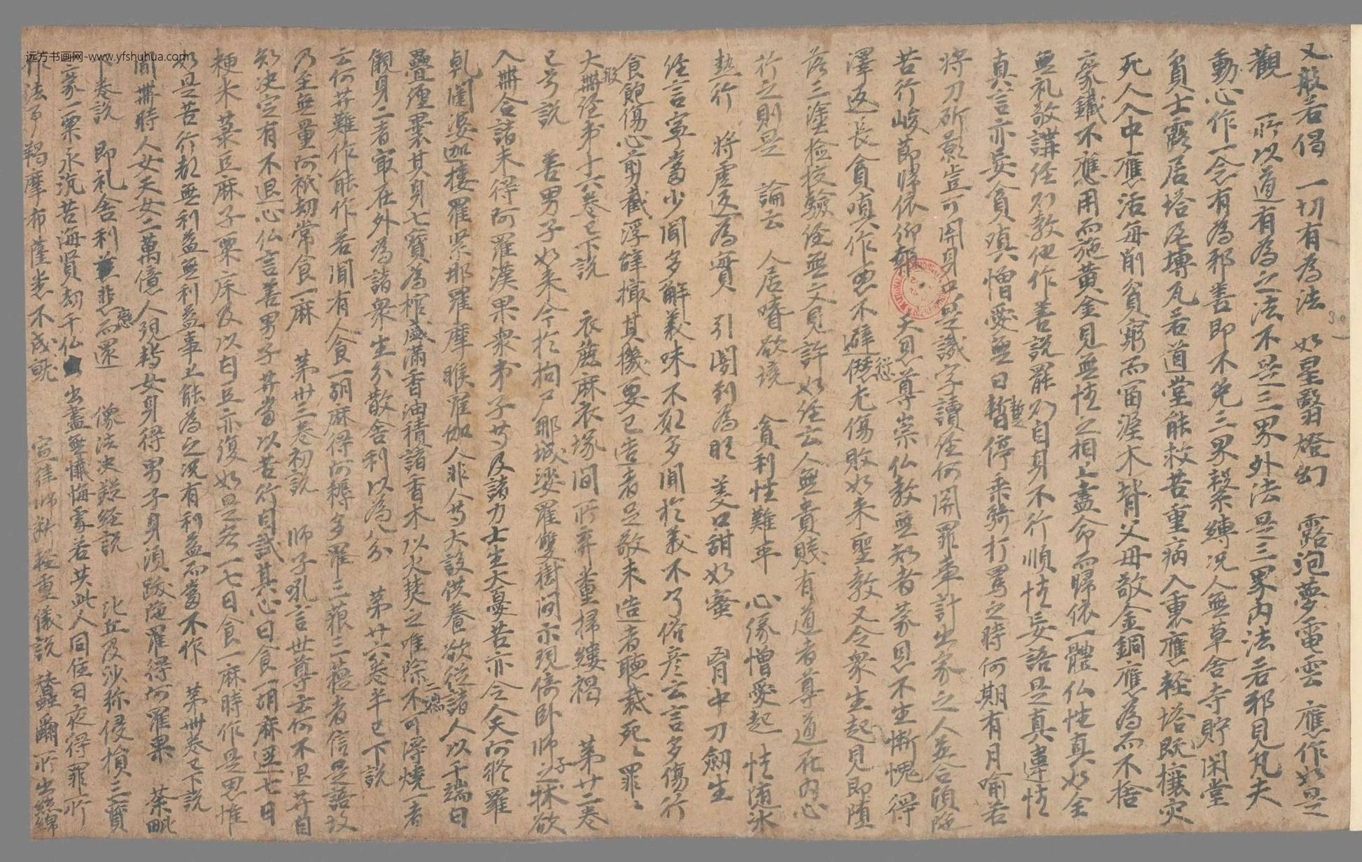 又般若偈 一切有為法 如星翳燈幻 露泡夢電雲 應作如是
觀 所以道有為之法不是三界外法是三界內法若邪見凡夫
動心作一念有為邪善即不免三界繫縛况人無草舍寺貯閑堂
貧士露居塔尾塼瓦若道堂能救苦重病入裏應輕塔既攘灾
死人入中應活每削貧窮而畄渥木背父母敬金銅應為而不捨
豪鐵不應用而施黃金見無情之相上盡命而歸依一體仏性真如全
無礼敬講經則教他作善說罷乃自身不行順情妄語是真違情
真言亦妄貪嗔憎愛無日暫停乘騎打罵之時何期有月喻若
將刀所影豈可開身口只議字讀經何開罪牽計出家之人並合頭陀
苦行峻節歸依仰 天見尊崇仏教無知者蒙思不生慚愧得
澤返長貪嗔作惡不礕 尤傷敗如來聖教又令衆生起見即堕
落三塗撿挍驗經無文見許如經云人無貴賤有道者尊道在內心
行之則是 論云 人居嗜欲境 貪利性難平 心緣憎愛起 性随冰
熱行 將虛返為實 引闇到為明 美口甜如蜜 胷中刀劒生
經言寧畜少聞多解義味不取多聞於義不了俗彦云言多傷行
食飽傷心剪截浮辞撮其機要已告者足敬未造者聽裁死々罪々
大般涅弟十六卷已下說 衣麁麻衣塚間所弃董掃縷褐 第廿一卷
已兮說 善男子如來今於拘尸那城娑羅雙樹間示現倚卧師子之牀欲
入涅槃合諸未得阿羅漢果衆弟子等及諸力士生大憂苦亦令天人阿脩羅
乹闥婆迦樓羅緊那羅摩睺羅伽人非人等大設供養欲從諸人以千端㲲
疊纏裹其身七寶為棺盛滿香油積諸香木以火焚之唯除不可得燒者
儭身二者㝡在外為諸衆生分散舍利以為分 第廿六卷半已下說
云何菩薩難作能作若聞有人食一胡麻得阿耨多羅三藐三菩提者信是語故
乃至無量阿祇劫常食一麻 第卅三卷初說 師子吼言世尊云何不退菩薩自
知决定有不退心仏言善男子菩薩當以苦行自試其心日食一胡麻逕七日
粳米菉豆麻子粟床及以白豆亦復如是各一七日食一麻時作是思惟
如是苦行都無利益無利益事上能為之况有利益而當不作 第卅卷已下說
聞涅槃時人女天女二萬億人現轉女身得男子身須跋陁羅得阿羅果 茶毗
卷說 即礼舍利並悲而還 像法决疑經說 比丘及沙弥侵損三寶
一豪一栗永沉苦海賢劫千仏出盡無懺悔處若共此人同住日夜得罪所
作法事羯摩布薩悉不成就 宣律師新輕重儀說 蠶爾所出綿
远方书画网-www.yfshuhua.com